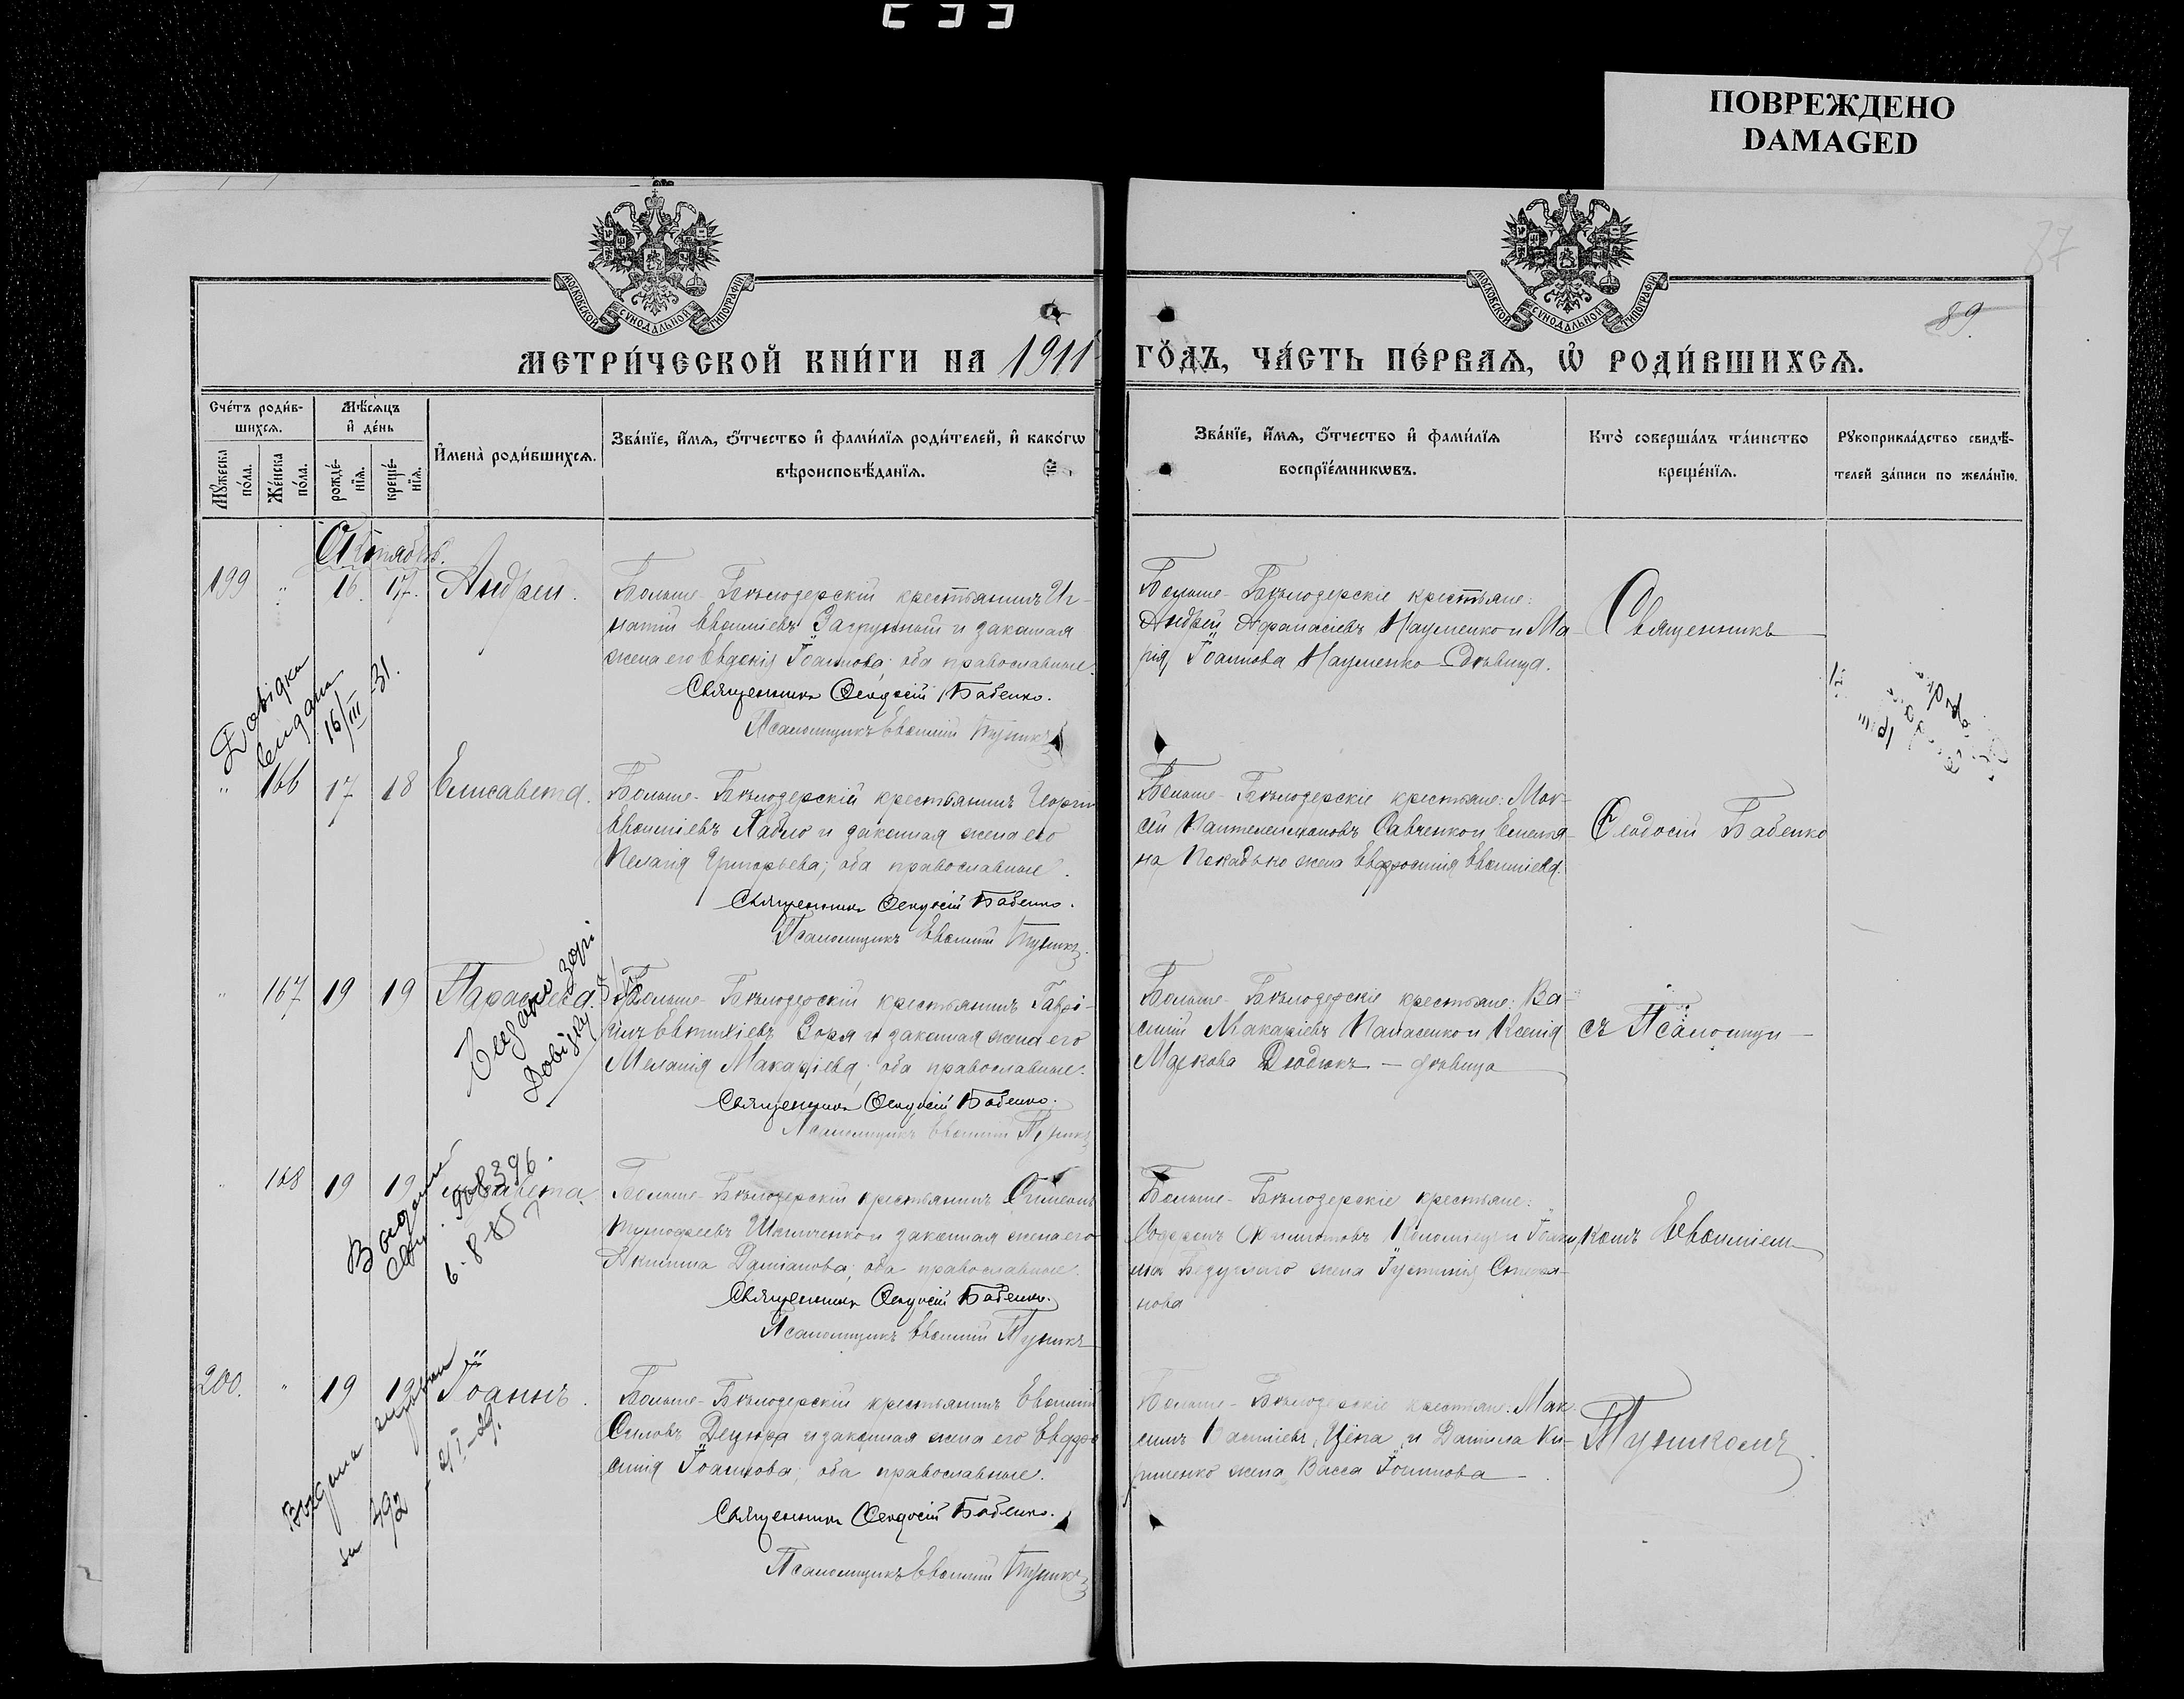 ПОВРЕЖДЕНО
DAMAGED
87
89
МОСКОВСКОЙ СѴНОДАЛЬНОЙ ТИПОГРАФІИ
МОСКОВСКОЙ СѴНОДАЛЬНОЙ ТИПОГРАФІИ
МЕТРИ́ЧЕСКОЙ КНИ́ГИ НА 1911
ГО́ДЪ, ЧА́СТЬ ПЕ́РВАѦ, Ѡ҆ РОДИ́ВШИХСѦ.
Сче́тъ роди́в-
шихсѧ.
Мꙋ́жеска по́ла.
Же́нска по́ла.
Мѣ́сѧцъ
и҆ де́нь
рожде́-
нїѧ.
креще́-
нїѧ.
И҆мена̀ роди́вшихсѧ.
Зва́нїе, и҆́мѧ, ѻ҆́тчество и҆ фами́лїѧ роди́телей, и҆ како́гѡ
вѣроисповѣ́данїѧ.
Зва́нїе, и҆́мѧ, ѻ҆́тчество и҆ фами́лїѧ
воспрїе́мникѡвъ.
Кто̀ соверша́лъ та́инство
креще́нїѧ.
Рꙋкоприкла́дство свидѣ́-
телей за́писи по жела́нїю.
Октябрь.
199 " 16. 17. Андрей.
Больше-Бѣлозерскій крестьянинъ Иг-
натій Евѳиміевъ Загрунный и законная
жена его Евдокія Іоаннова; оба православные.
Священникъ Ѳеодосій Бабенко.
Псаломщикъ Евѳимій Пуникъ
Больше-Бѣлозерскіе крестьяне:
Андрей Аѳанасіевъ Науменко и Ма-
рія Іоаннова Науменко-дѣвица.
Священникъ
Довідка
видана
16/III 31.
" 166 17 18 Елисавета.
Больше-Бѣлозерскій крестьянинъ Георгій
Евѳиміевъ и законная жена его
Пелагія Григорьева; оба православные.
Священникъ Ѳеодосій Бабенко.
Псаломщикъ Евѳимій Пуникъ.
Больше-Бѣлозерскіе крестьяне: Мои-
сей Пантелеимоновъ Савченко и
жена Евфросинія Евѳиміева.
Ѳеодосій Бабенко
" 167 19 19 Параскева.
Больше-Бѣлозерскій крестьянинъ Гаврі-
илъ Евтихіевъ Зоря и законная жена его
Меланія Макаріева; оба православные.
Священникъ Ѳеодосій Бабенко.
Псаломщикъ Евѳимій Пуникъ
Больше-Бѣлозерскіе крестьяне: Ва-
силій Макаріевъ Панасенко и Ксенія
Маркова — дѣвица
съ Псаломщи-
Видано зорі
Довідку
" 168 19 19 Елисавета
Больше-Бѣлозерскій крестьянинъ Симеонъ
Тимоѳеевъ и законная жена его
Акилина Даміанова; оба православные.
Священникъ Ѳеодосій Бабенко.
Псаломщикъ Евѳимій Пуникъ
Больше-Бѣлозерскіе крестьяне:
жена Іустинія Стефа-
нова
комъ Евѳиміем
908396.
6-8-85
200. " 19 19 Іоаннъ.
Больше-Бѣлозерскій крестьянинъ Евѳимій
Силовъ Децюра и законная жена его Евфро
синія Іоаннова; оба православные.
Священникъ Ѳеодосій Бабенко.
Псаломщикъ Евѳимій Пуникъ
Больше-Бѣлозерскіе крестьяне: Мак-
симъ Василіевъ и Даніила Ки-
риленко жена Васса Іоаннова
Пуникомъ.
492